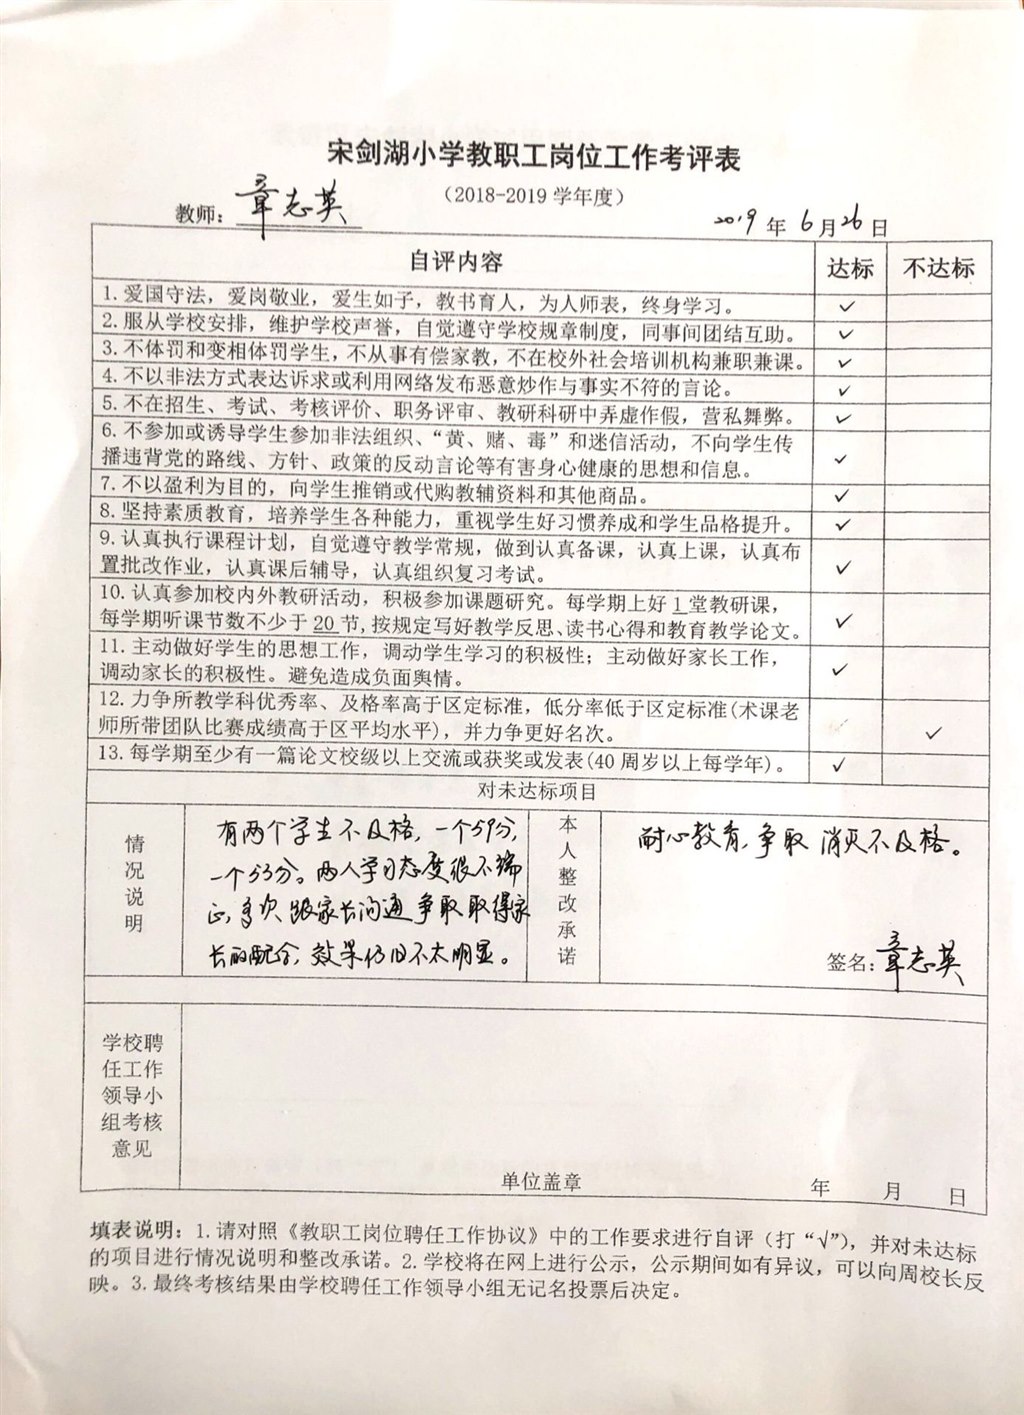 宋剑湖小学教职工岗位工作考评表
(2018-2019 学年度)
教师: 章志英 2019 年 6 月 26 日
自评内容 达标 不达标
1.爱国守法，爱岗敬业，爱生如子，教书育人，为人师表，终身学习。 ✓
2.服从学校安排，维护学校声誉，自觉遵守学校规章制度，同事间团结互助。 ✓
3.不体罚和变相体罚学生，不从事有偿家教，不在校外社会培训机构兼职兼课。 ✓
4.不以非法方式表达诉求或利用网络发布恶意炒作与事实不符的言论。 ✓
5.不在招生、考试、考核评价、职务评审、教研科研中弄虚作假，营私舞弊。 ✓
6.不参加或诱导学生参加非法组织、“黄、赌、毒”和迷信活动，不向学生传
播违背党的路线、方针、政策的反动言论等有害身心健康的思想和信息。 ✓
7.不以盈利为目的，向学生推销或代购教辅资料和其他商品。 ✓
8.坚持素质教育，培养学生各种能力，重视学生好习惯养成和学生品格提升。 ✓
9.认真执行课程计划，自觉遵守教学常规，做到认真备课，认真上课，认真布
置批改作业，认真课后辅导，认真组织复习考试。 ✓
10.认真参加校内外教研活动，积极参加课题研究。每学期上好 1 堂教研课，
每学期听课节数不少于 20 节，按规定写好教学反思、读书心得和教育教学论文。 ✓
11.主动做好学生的思想工作，调动学生学习的积极性；主动做好家长工作，
调动家长的积极性。避免造成负面舆情。 ✓
12.力争所教学科优秀率、及格率高于区定标准，低分率低于区定标准(术课老
师所带团队比赛成绩高于区平均水平)，并力争更好名次。 ✓
13.每学期至少有一篇论文校级以上交流或获奖或发表(40 周岁以上每学年)。 ✓
对未达标项目
情况说明
有两个学生不及格，一个59分，
一个53分。两人学习态度很不端
正，多次跟家长沟通争取取得家
长的配合，效果仍旧不太明显。
本人整改承诺
耐心教育，争取消灭不及格。
签名: 章志英
学校聘
任工作
领导小
组考核
意见
单位盖章 年 月 日
填表说明：1.请对照《教职工岗位聘任工作协议》中的工作要求进行自评（打“√”），并对未达标
的项目进行情况说明和整改承诺。2.学校将在网上进行公示，公示期间如有异议，可以向周校长反
映。3.最终考核结果由学校聘任工作领导小组无记名投票后决定。